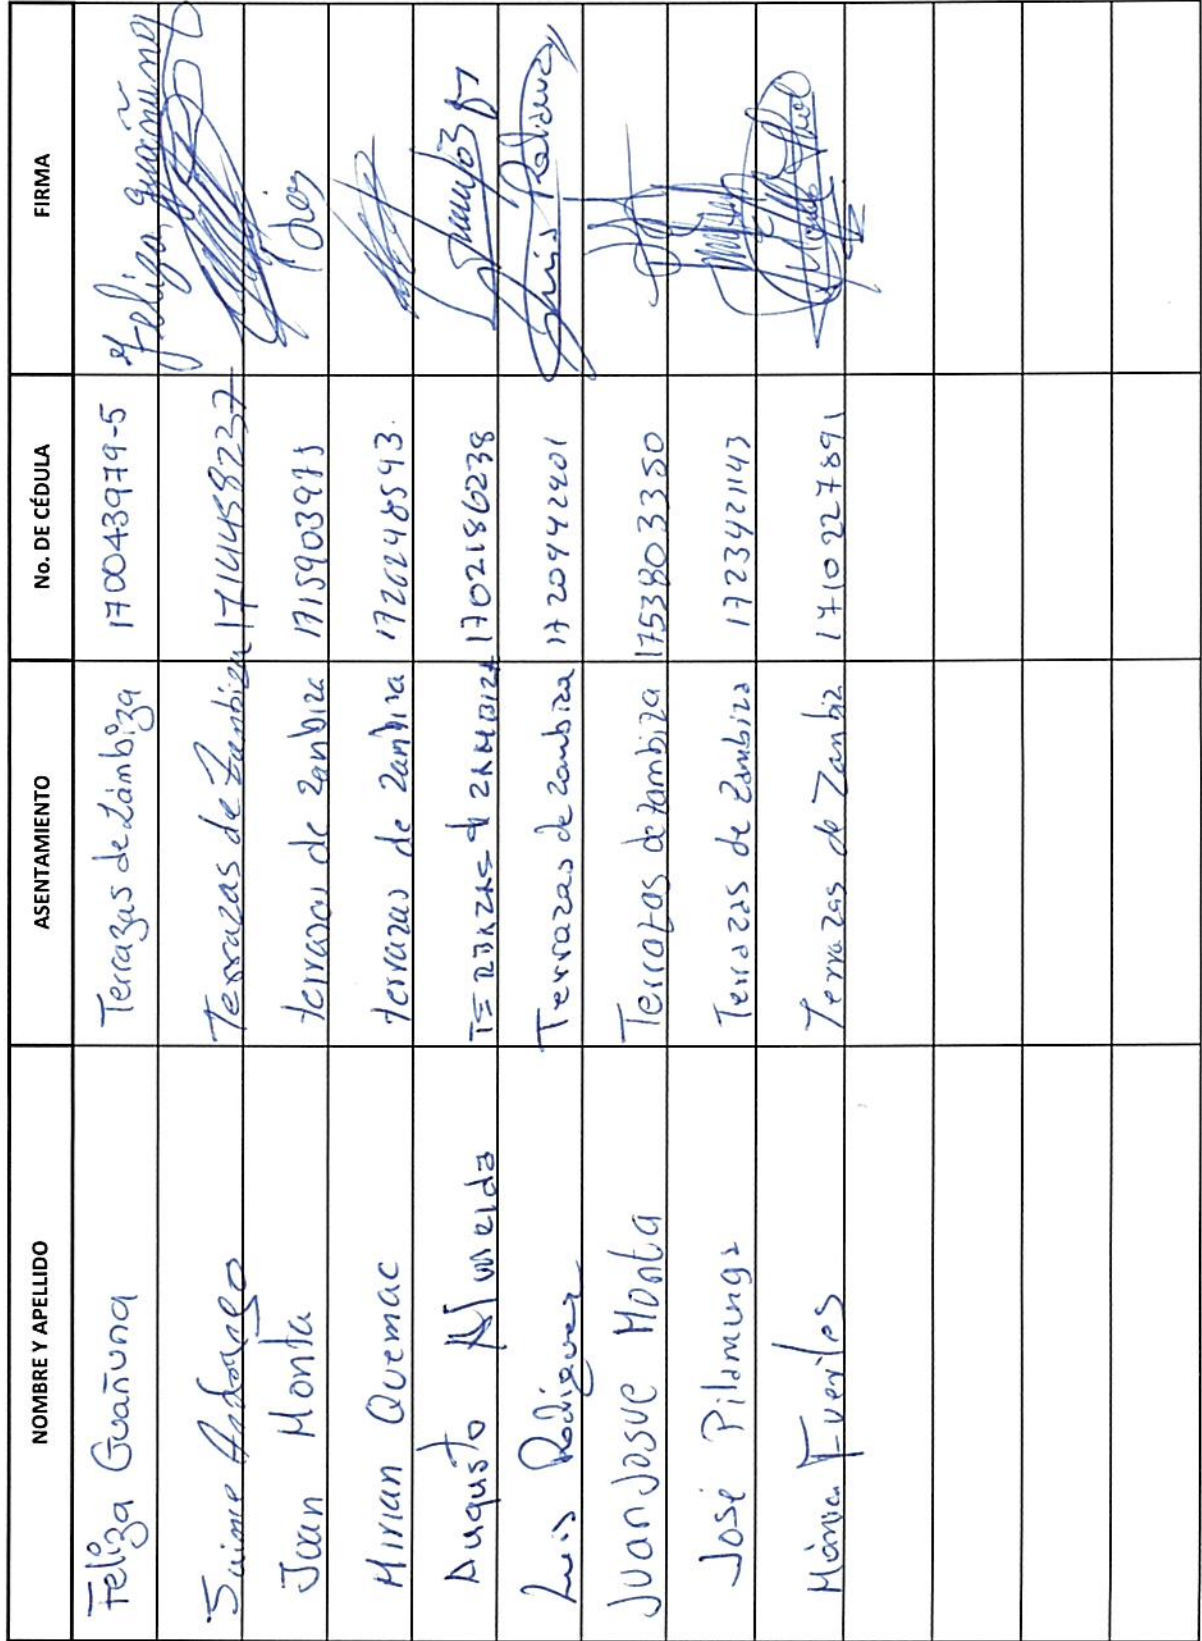 NOMBRE Y APELLIDO ASENTAMIENTO No. DE CÉDULA FIRMA
Feliza Guañuna Terrazas de Zámbiza 170043979-5 Feliza guañuna
Andrango Terrazas de Zambiza 1714458237
Juan Monta terrazas de Zanbiza 171590397
Mirian Quemac terrazas de Zanbiza 1726248593.
Augusto Almeida 1702186238
Luis Rodriguez Terrazas de Zambiza 1720942401 Luis
Juan Josue Monta Terrazas de zambiza 1753803350
José Pilamunga Terrazas de Zambiza 1723421143
Mónica Fueriles Terrazas de Zambiz 1710227891